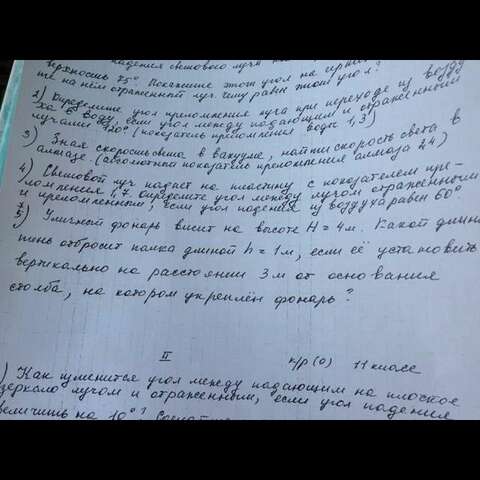 падения светового луча
поверхность 75°. Покажите этот угол на
те на нём отражённый луч. Чему равен этот угол?
2) Определите угол преломления луча при переходе из возду
ха в воду, если угол между падающим и отражённым
лучами 120° (показатель преломления воды 1,3)
3) Зная скорость света в вакууме, найти скорость света в
алмазе (абсолютной показатель преломления алмаза 2,4)
4) Световой луч падает на пластину с показателем пре-
ломления 1,7. Определите угол между лучом отражённым
и преломлённым, если угол падения из воздуха равен 60°.
5) Уличный фонарь висит на высоте H = 4м. Какой длины
тень отбросит палка длиной h = 1м, если её установить
вертикально на расстоянии 3 м от основания
столба, на котором укреплён фонарь?
II к/р (0) 11 класс
) Как изменится угол между падающим на плоское
зеркало лучом и отражённым, если угол падения
величить на 10°?